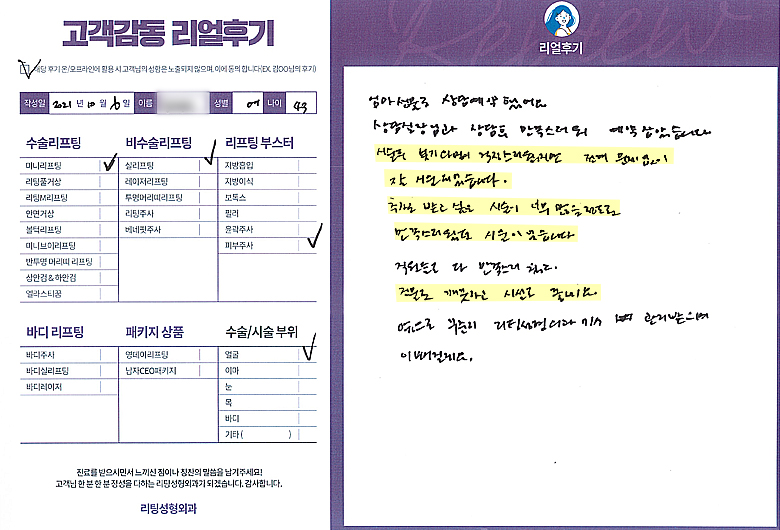 고객감동 리얼후기
해당 후기 온/오프라인에 활용 시 고객님의 성함은 노출되지 않으며, 이에 동의 합니다(EX. 김OO님의 후기)
작성일 2021 년 10 월 6 일 이름 성별 여 나이 43
수술리프팅 비수술리프팅 리프팅 부스터
미니리프팅 실리프팅 지방흡입
리팅풀거상 레이저리프팅 지방이식
리팅M리프팅 투명머리띠리프팅 보톡스
안면거상 리팅주사 필러
볼터리프팅 베네핏주사 윤곽주사
미니브이리프팅 피부주사
반투명 머리띠 리프팅
상안검 & 하안검
엘라스티꿈
바디 리프팅 패키지 상품 수술/시술 부위
바디주사 영데이리프팅 얼굴
바디실리프팅 남자CEO패키지 이마
바디레이저 눈
목
바디
기타 ( )
진료를 받으시면서 느끼신 점이나 칭찬의 말씀을 남겨주세요!
고객님 한 분 한 분 정성을 다하는 리팅성형외과가 되겠습니다. 감사합니다.
리팅성형외과
Review
리얼후기
엄마 선물로 상담예약 했어요
상담실장님과 상담도 만족스러워 예약 잡았습니다
전혀 문제없이
잘 시술되었습니다.
시술이 너무
만족스러웠던 시술이 됐습니다
직원분도 다
건물도 깨끗하고 시설도 좋네요
리팅성형외과 관리받으며
이뻐질래요.